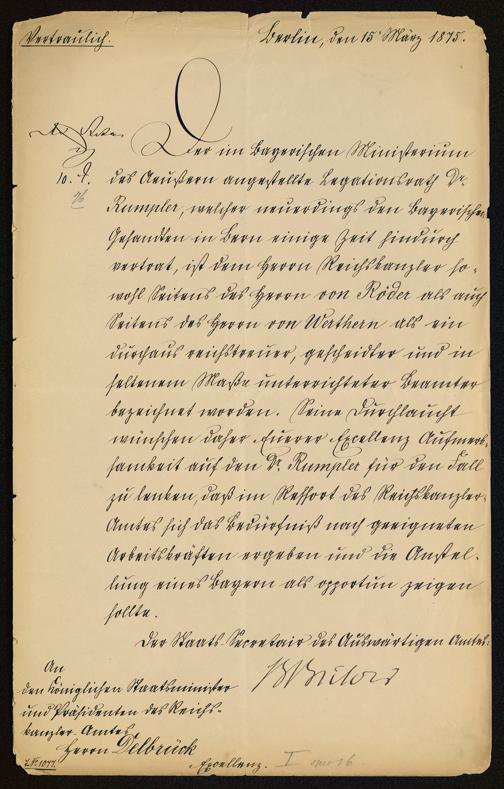 Vertraulich.
Berlin, den 15 März 1875.
Der im Bayerischen Ministerium
des Aeußern angestellte Legationsrath Dr.
Rumpler, welcher neuerdings den Bayerischen
Gesandten in Bern einige Zeit hindurch
vertrat, ist dem Herrn Reichskanzler so-
wohl Seitens des Herrn von Röder als auch
Seitens des Herrn von Werthern als ein
durchaus reichstreuer, gescheidter und in
seltenem Maße unterrichteter Beamter
bezeichnet worden. Seine Durchlaucht
wünschen daher Euerer Excellenz Aufmerk-
samkeit auf den Dr. Rumpler für den Fall
zu lenken, daß im Ressort des Reichskanzler-
Amtes sich das Bedürfniß nach geeigneten
Arbeitskräften ergeben und die Anstel-
lung eines Bayern als opportun zeigen
sollte.
Der Staats-Secretair des Auswärtigen Amtes.
BvBülow
An
den Königlichen Staatsminister
und Präsidenten des Reichs-
kanzler-Amtes
Herrn Delbrück
Excellenz.
I